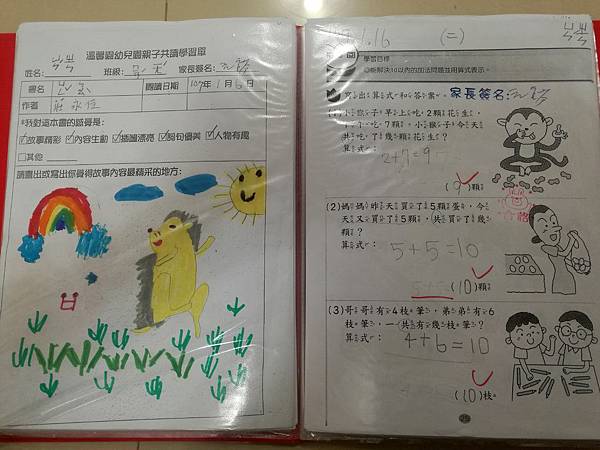 溫馨園幼兒園親子共讀學習單
姓名:
班級:
家長簽名:
書名
閱讀日期 107年1月6日
作者 莊永佳
*我對這本書的感覺是:
☑故事精彩 ☑內容生動 ☑插圖漂亮 ☑詞句優美 ☑人物有趣
□其他
請畫出或寫出你覺得故事內容最精采的地方:
1.16 (二)
學習目標
◎能解決10以內的加法問題並用算式表示。
寫出算式和答案。 家長簽名:
(1)小猴子早上吃2顆花生,
下午吃7顆,小猴子今天
共吃了幾顆花生?
算式:
2+7=9
(9)顆
(2)媽媽昨天買了5顆蛋,今
天又買了5顆,共買了幾
顆?
算式:
5+5=10
(10)顆
合格
(3)哥哥有4枝筆,弟弟有6
枝筆,一共有幾枝筆?
算式:
4+6=10
(10)枝